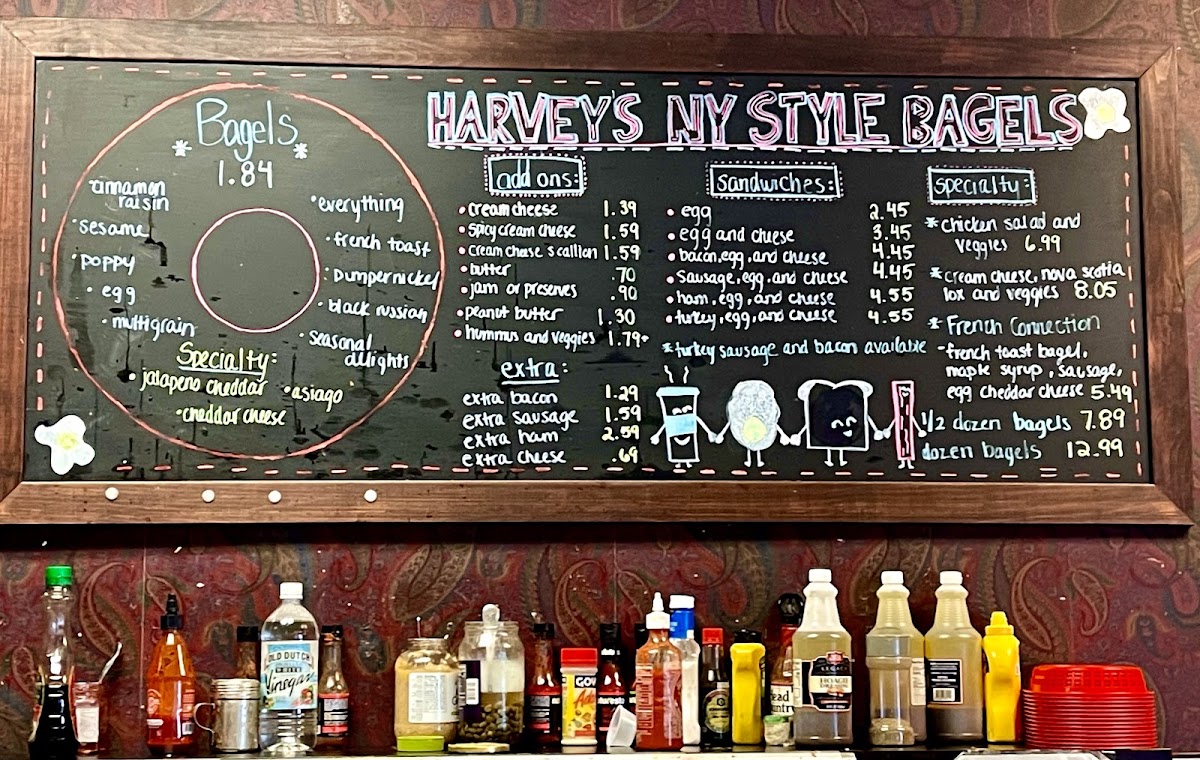 Bagels
* 1.84 *
cinnamon
raisin
• sesame
• poppy
• egg
• multigrain
• everything
• french toast
• pumpernickel
• black russian
• seasonal
delights
Specialty:
• jalapeno cheddar
• asiago
• cheddar cheese
HARVEY'S NY STYLE BAGELS
add ons:
• cream cheese 1.39
• spicy cream cheese 1.59
• cream cheese scallion 1.59
• butter .70
• jam or preserves .90
• peanut butter 1.30
• hummus and veggies 1.79
extra:
extra bacon 1.29
extra sausage 1.59
extra ham 2.59
extra cheese .69
sandwiches:
• egg 2.45
• egg and cheese 3.45
• bacon, egg, and cheese 4.45
• sausage, egg, and cheese 4.45
• ham, egg, and cheese 4.55
• turkey, egg, and cheese 4.55
* turkey sausage and bacon available
specialty:
* chicken salad and
veggies 6.99
* cream cheese, nova scotia
lox and veggies 8.05
* French Connection
- french toast bagel,
maple syrup, sausage,
egg cheddar cheese 5.49
1/2 dozen bagels 7.89
dozen bagels 12.99
OLD DUTCH
Vinegar
GOYA